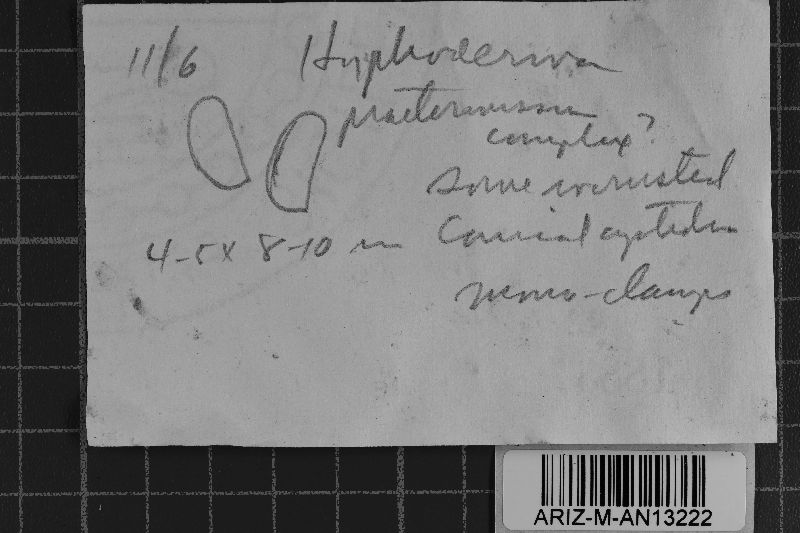 11/6 Hyphoderma
praetermissum
complex?
some incrusted
4-5 x 8-10 um Conical cystidia
mono-clamps
ARIZ-M-AN13222